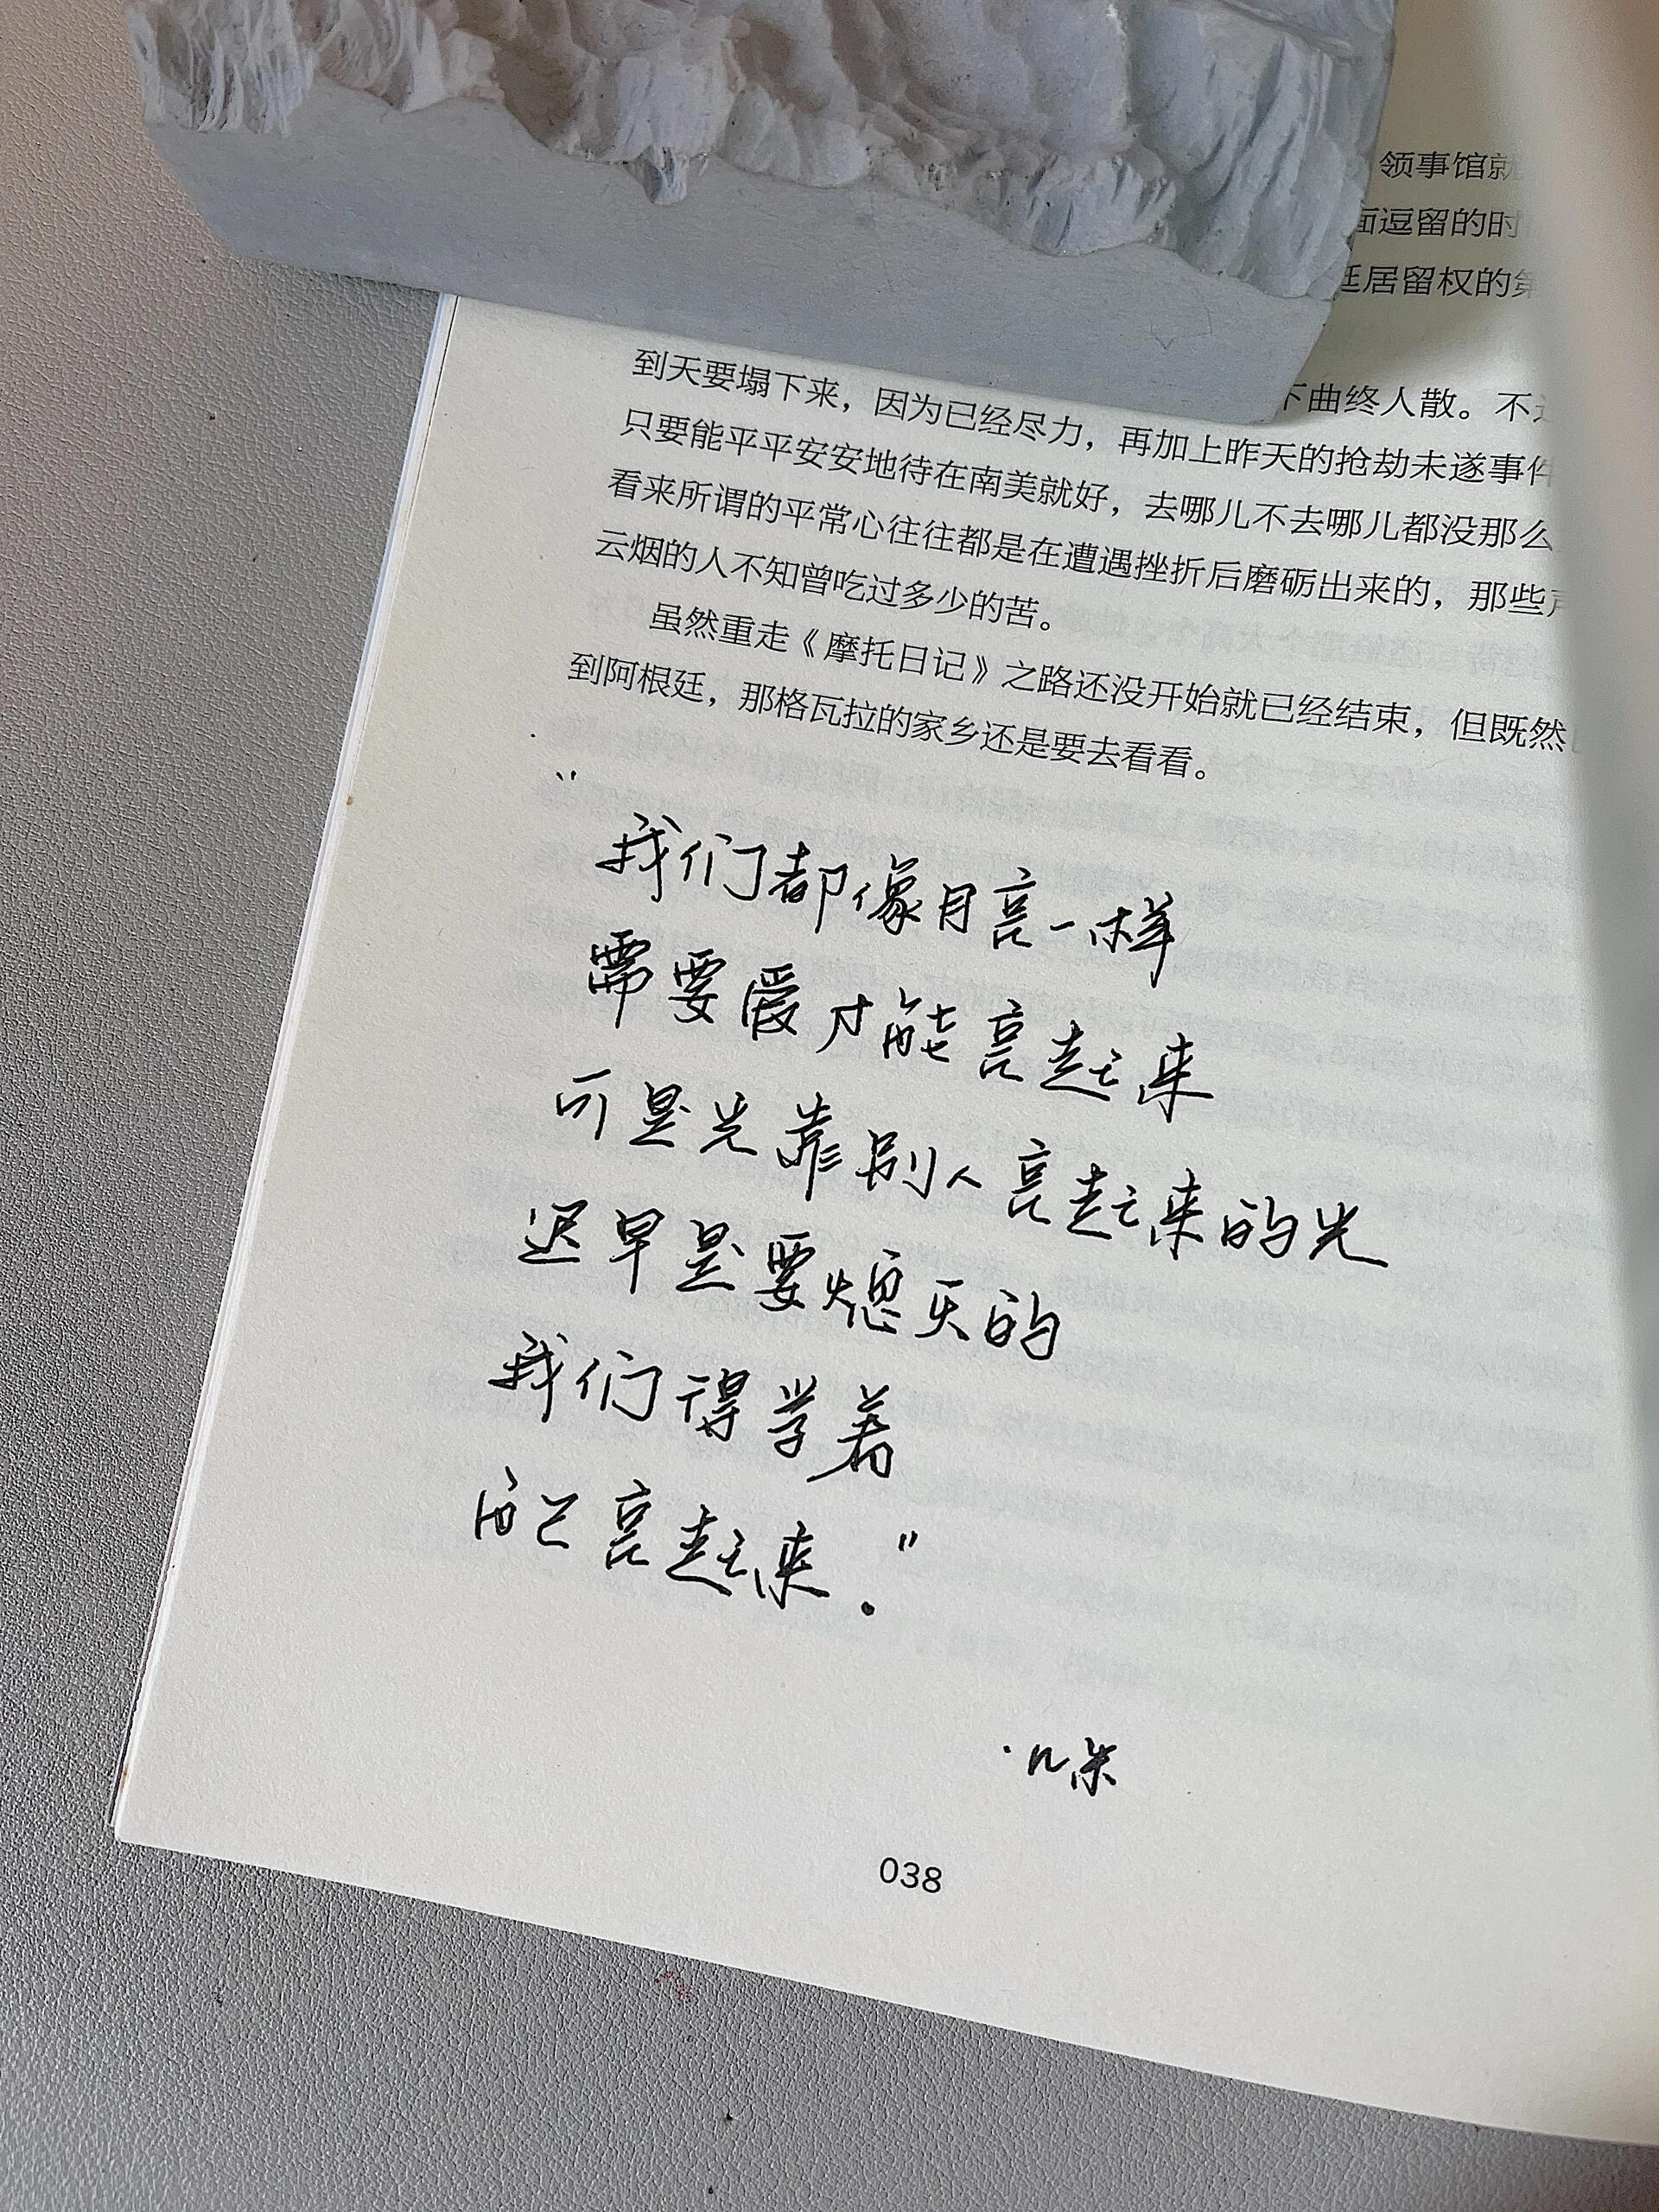 领事馆就
面逗留的时
廷居留权的第
下曲终人散。不
到天要塌下来，因为已经尽力，再加上昨天的抢劫未遂事件
只要能平平安安地待在南美就好，去哪儿不去哪儿都没那么
看来所谓的平常心往往都是在遭遇挫折后磨砺出来的，那些
云烟的人不知曾吃过多少的苦。
虽然重走《摩托日记》之路还没开始就已经结束，但既然
到阿根廷，那格瓦拉的家乡还是要去看看。
"我们都像月亮一样
需要爱才能亮起来
可是光靠别人亮起来的光
迟早是要熄灭的
我们得学着
自己亮起来."
038